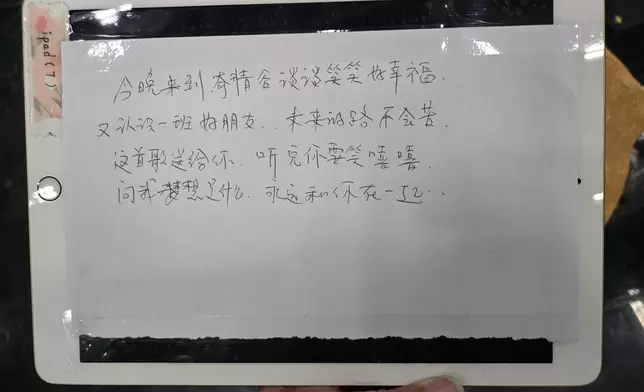 ipad(7)
今晚来到奇情谷谈谈笑笑好幸福.
又认识一班好朋友..未来的路不会苦.
这首歌送给你.听完你要笑嘻嘻.
问我梦想是什么.永远和你在一起..